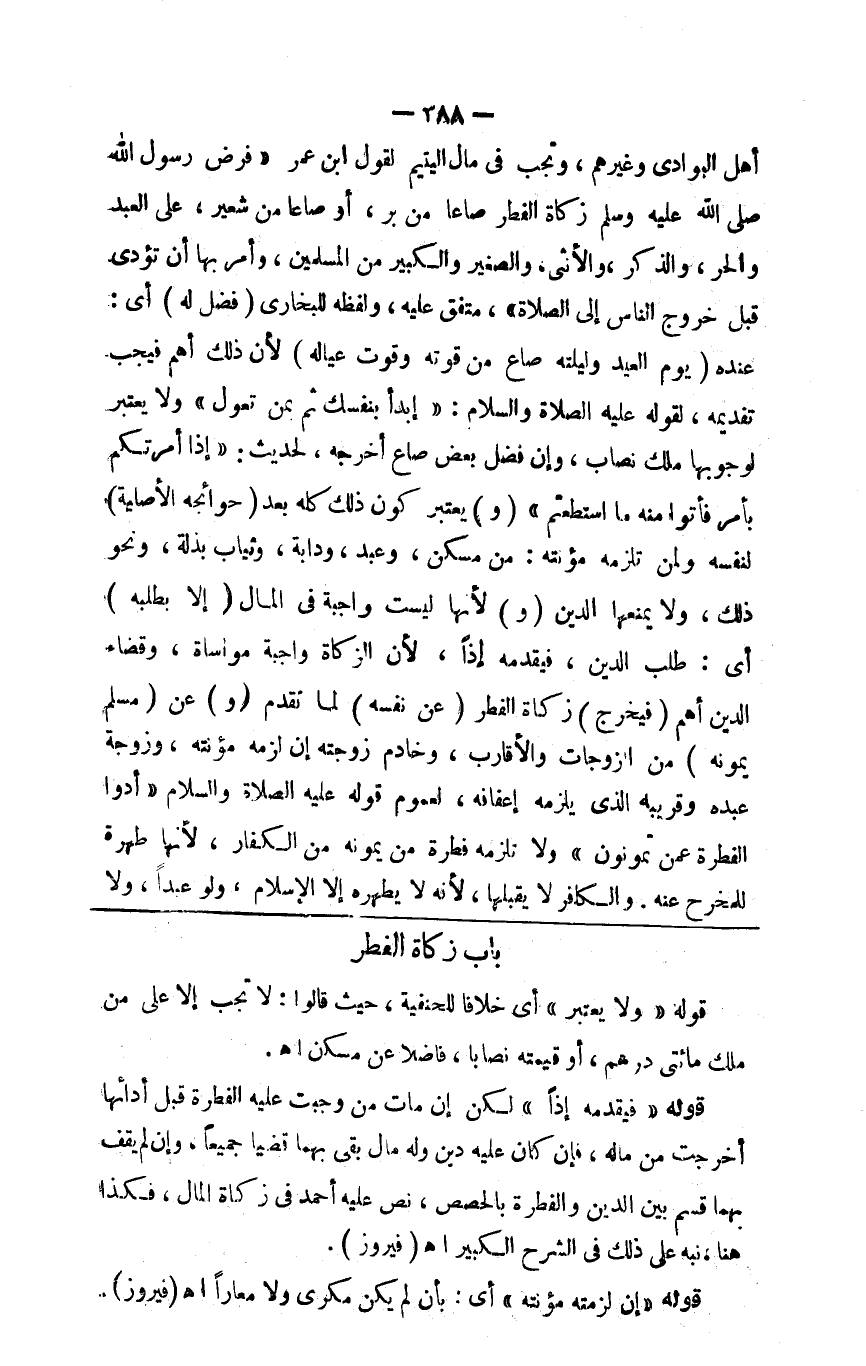 — ٣٨٨ —
أهل البوادى وغيرهم ، وتجب فى مال اليتيم لقول ابن عمر « فرض رسول الله
صلى الله عليه وسلم زكاة الفطر صاعا من بر ، أو صاعا من شعير ، على العبد
والحر ، والذكر ، والأنثى . والصغير والكبير من المسلمين ، وأمر بها أن تؤدى
قبل خروج الناس إلى الصلاة» ، متفق عليه ، ولفظه للبخارى ( فضل له ) أى :
عنده ( يوم العيد وليلته صاع من قوته وقوت عياله ) لأن ذلك أهم فيجب
تقديمه ، لقوله عليه الصلاة والسلام : « إبدأ بنفسك ثم بمن تعول » ولا يعتبر
لوجوبها ملك نصاب ، وإن فضل بعض صاع أخرجه ، لحديث : « إذا أمرتكم
بأمر فأتوا منه ما استطعتم » ( و ) يعتبر كون ذلك كله بعد ( حوائجه الأصلية)
لنفسه ولمن تلزمه مؤنته : من مسكن ، وعبد ، ودابة ، وثياب بذلة ، ونحو
ذلك ، ولا يمنعها الدين ( و ) لأنها ليست واجبة فى المال ( إلا بطلبه )
أى : طلب الدين ، فيقدمه إذاً ، لأن الزكاة واجبة مواساة ، وقضاء
الدين أهم ( فيخرج ) زكاة الفطر ( عن نفسه ) لما تقدم ( و ) عن ( مسلم
يمونه ) من الزوجات والأقارب ، وخادم زوجته إن لزمه مؤنته ، وزوجة
عبده وقريبه الذى يلزمه إعفافه ، لعموم قوله عليه الصلاة والسلام « أدوا
الفطرة عمن تمونون » ولا تلزمه فطرة من يمونه من الكفار ، لأنها طهرة
للمخرج عنه . والكافر لا يقبلها ، لأنه لا يطهره إلا الإسلام ، ولو عبداً ، ولا
باب زكاة الفطر
قوله « ولا يعتبر » أى خلافا للحنفية ، حيث قالوا : لا تجب إلا على من
ملك مائتى درهم ، أو قيمته نصابا ، فاضلا عن مسكن ا ه .
قوله « فيقدمه إذاً » لكن إن مات من وجبت عليه الفطرة قبل أدائها
أخرجت من ماله ، فإن كان عليه دين وله مال بقى بهما قضيا جميعاً ، وإن لم يقف
بهما قسم بين الدين والفطرة بالحصص ، نص عليه أحمد فى زكاة المال ، فكذا
هنا ، نبه على ذلك فى الشرح الكبير ا ه ( فيروز ) .
قوله «إن لزمته مؤنته » أى : بأن لم يكن مكرى ولا معاراً ا ه (فيروز) .